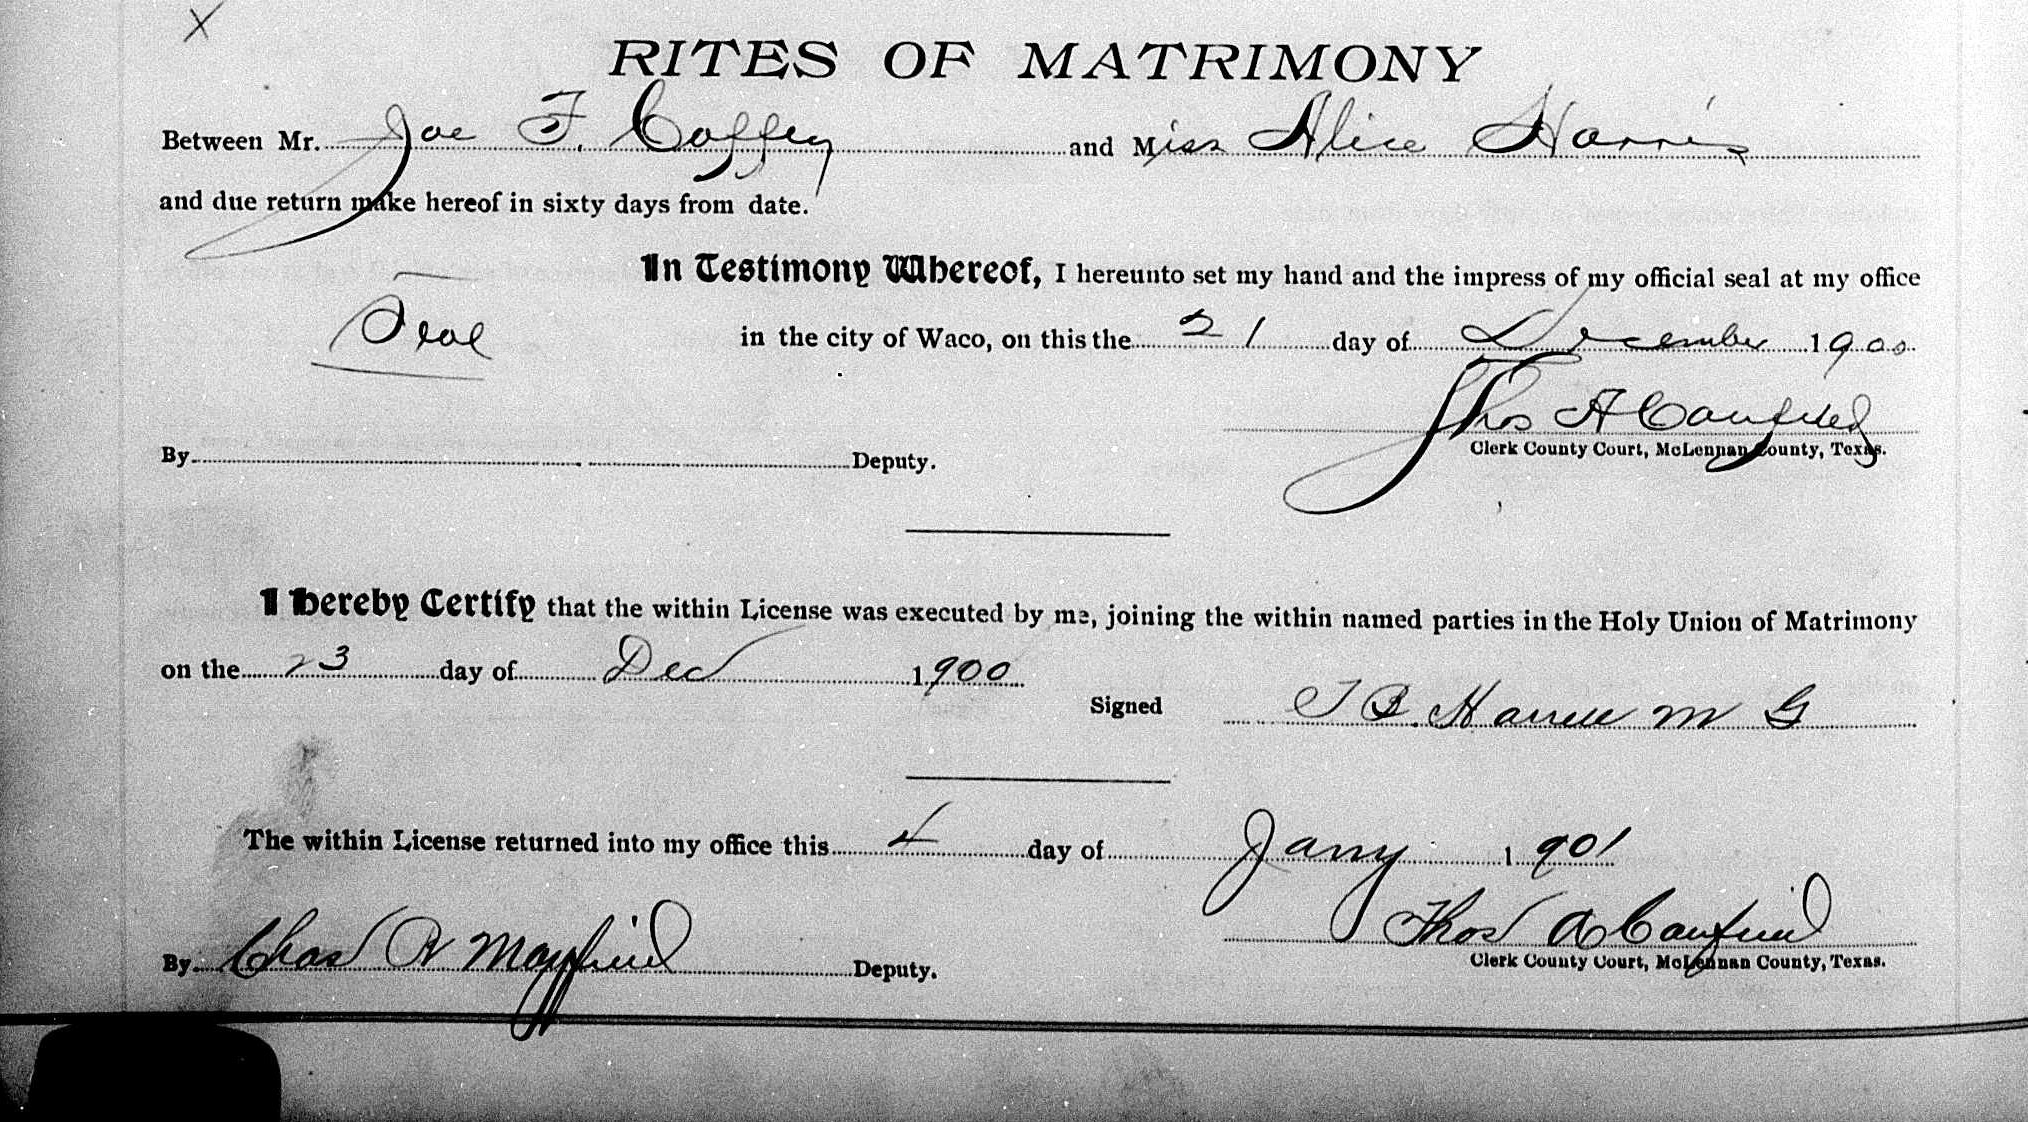 X
RITES OF MATRIMONY
Between Mr. Joe F. Coffey and Miss Alice Harris
and due return make hereof in sixty days from date.
In Testimony Whereof, I hereunto set my hand and the impress of my official seal at my office
Seal in the city of Waco, on this the 21 day of December 1900.
Thos A Caufield
By Deputy. Clerk County Court, McLennan County, Texas.
I hereby Certify that the within License was executed by me, joining the within named parties in the Holy Union of Matrimony
on the 23 day of Dec 1900
Signed T B. Harrell M G
The within License returned into my office this 4 day of Jany 1901
By Chas R Mayfield Deputy. Thos A Caufield
Clerk County Court, McLennan County, Texas.